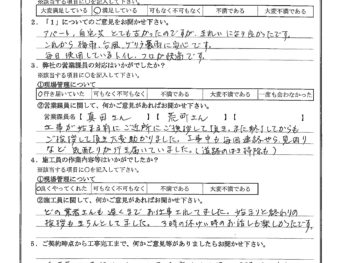 ※該当する項目に○を記入して下さい。
大変満足している ○満足している 可もなく不可もなく 不満である 大変不満である
2．「1」についてのご意見をお聞かせ下さい。
アパート、自宅共とても古かったのですが、きれいになり良かったです。
これから梅雨、台風、ゲリラ豪雨に安心です。
3．弊社の営業課員の対応はいかがでしたか？
※該当する項目に○を記入して下さい。
①現場管理について
○行き届いていた 可もなく不可もなく 不満である 大変不満である 一度も会わなかった
②営業課員に関して、何かご意見があればお聞かせ下さい。
営業課員名【 真田さん 】【 荒町さん 】【 】
工事が始まる前にご近所にご挨拶して頂き、また終了してからも
ご挨拶して頂き大変助かりました。工事中も毎回連絡や見回り
など気配りが行き届いていました。(道路のはき掃除も)
4．施工員の作業内容等はいかがでしたか？
※該当する項目に○を記入して下さい。
①現場管理について
○良くやってくれた 可もなく不可もなく 不満である 大変不満である
②施工員に関して、何かご意見があればお聞かせ下さい。
どの業者さんも遅くまでお仕事してました。始まりと終わりの
挨拶もきちんとしてました。3時の休けい時のお話しも楽しかったです。
5．ご契約時点から工事完工まで、何かご意見等がありましたらお聞かせ下さい。